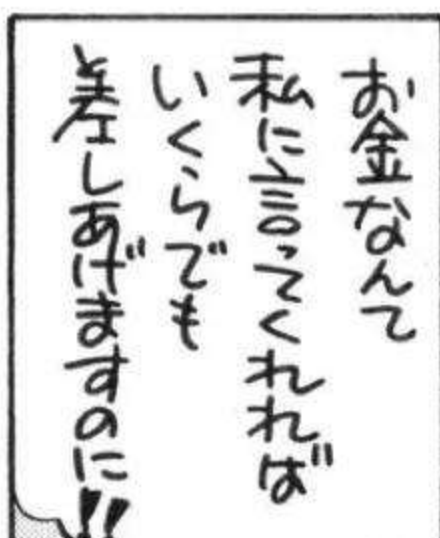 お金なんて
私に言ってくれれば
いくらでも
差しあげますのに!!